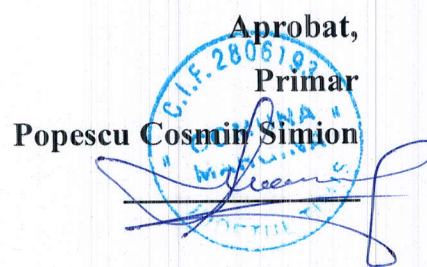 Aprobat,
Primar
Popescu Cosmin Simion
C.I.F. 2806193
COMUNA